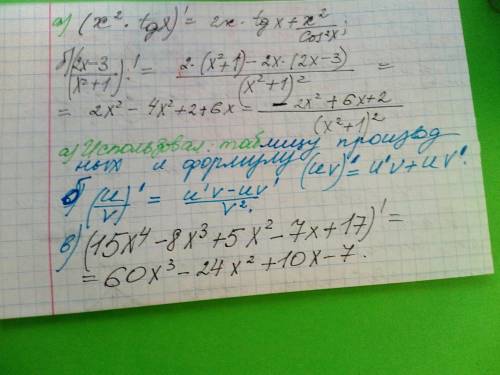 а) (x² · tgx)' = 2x · tgx + x²/cos²x;
б) (2x-3/x²+1)' = 2·(x²+1)-2x·(2x-3)/(x²+1)² =
= 2x²-4x²+2+6x = -2x²+6x+2/(x²+1)²
а) Использовал таблицу производ
ных и формулу (uv)' = u'v+uv'
б (u/v)' = u'v-uv'/v².
в) (15x⁴-8x³+5x²-7x+17)' =
= 60x³-24x²+10x-7.